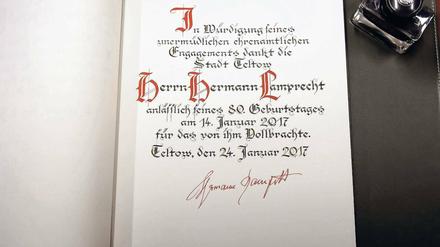 In Würdigung seines
unermüdlichen ehrenamtlichen
Engagements dankt die
Stadt Teltow
Herrn Hermann Lamprecht
anläßlich seines 80. Geburtstages
am 14. Januar 2017
für das von ihm Vollbrachte.
Teltow, den 24. Januar 2017
Hermann Lamprecht